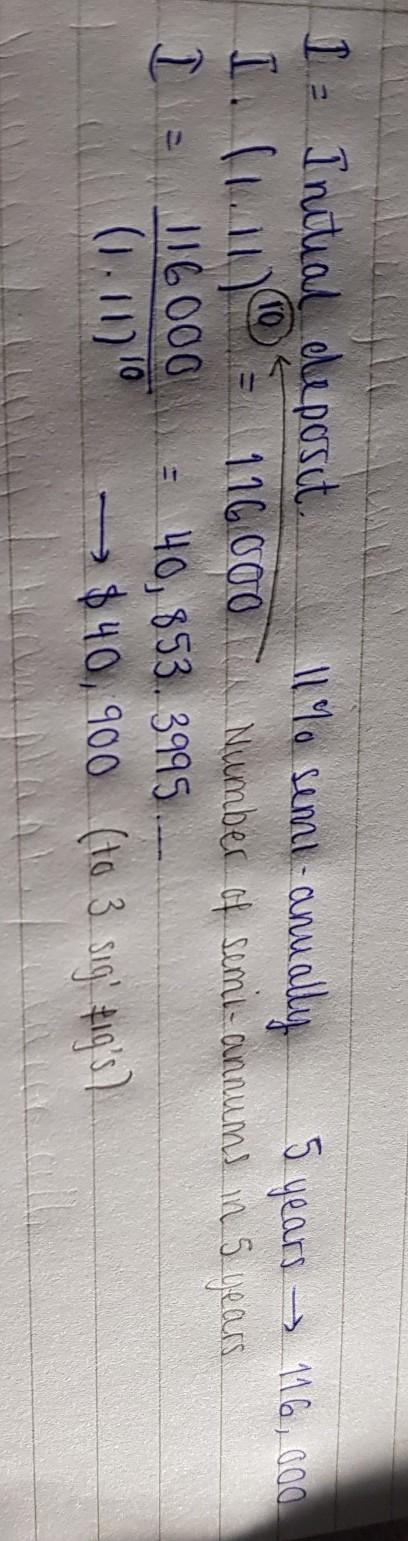 I = Initial deposit. 11% semi-anually 5 years → 116,000
I · (1.11)^10 = 116000 Number of semi-annums in 5 years
I = 116000 / (1.11)^10 = 40,853.3995...
→ $40,900 (to 3 sig' fig's)